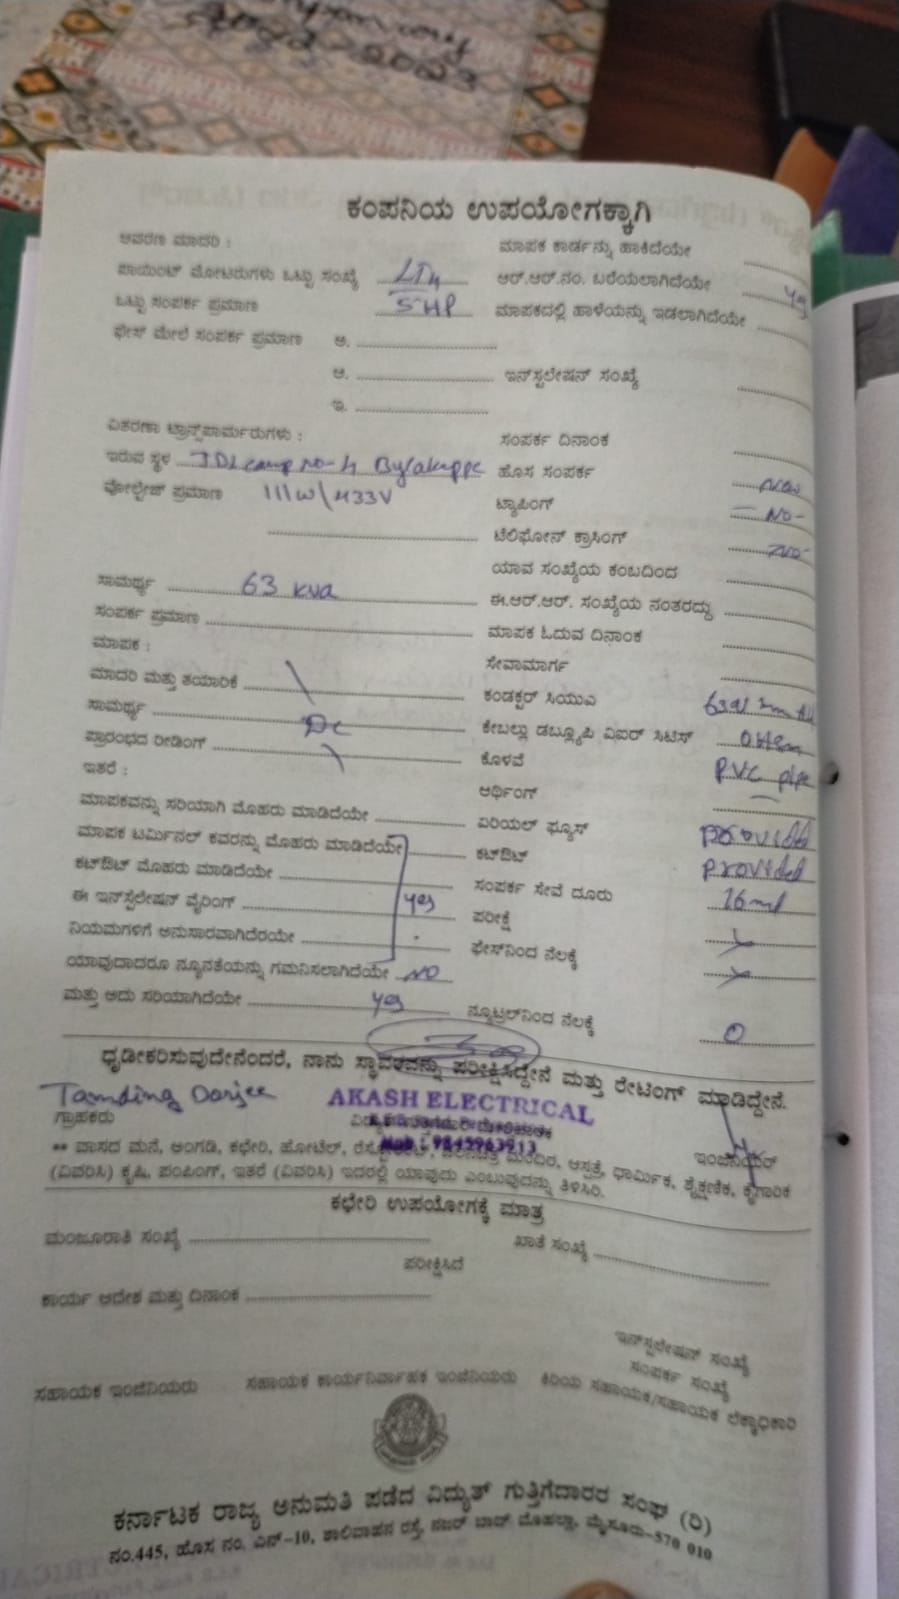 2022-2023
ಕಂಪನಿಯ ಉಪಯೋಗಕ್ಕಾಗಿ
ಆವರಣ ಮಾದರಿ : ಮಾಪಕ ಕಾರ್ಡನ್ನು ಹಾಕಿದೆಯೇ
ಪಾಯಿಂಟ್ ಮೋಟರುಗಳು ಒಟ್ಟು ಸಂಖ್ಯೆ LT4 ಆರ್.ಆರ್.ನಂ. ಬರೆಯಲಾಗಿದೆಯೇ yes
ಒಟ್ಟು ಸಂಪರ್ಕ ಪ್ರಮಾಣ 5HP ಮಾಪಕದಲ್ಲಿ ಹಾಳೆಯನ್ನು ಇಡಲಾಗಿದೆಯೇ
ಫೇಸ್ ಮೇಲೆ ಸಂಪರ್ಕ ಪ್ರಮಾಣ ಅ.
ಆ. ಇನ್‌ಸ್ಟಲೇಷನ್ ಸಂಖ್ಯೆ
ಇ.
ವಿತರಣಾ ಟ್ರಾನ್ಸ್‌ಫಾರ್ಮರುಗಳು : ಸಂಪರ್ಕ ದಿನಾಂಕ
ಇರುವ ಸ್ಥಳ TDL camp no-4 Bylakuppe ಹೊಸ ಸಂಪರ್ಕ New
ವೋಲ್ಟೇಜ್ ಪ್ರಮಾಣ ಟ್ಯಾಪಿಂಗ್ - NO-
ಟೆಲಿಫೋನ್ ಕ್ರಾಸಿಂಗ್ NO-
ಯಾವ ಸಂಖ್ಯೆಯ ಕಂಬದಿಂದ
ಸಾಮರ್ಥ್ಯ 63 kva ಈ.ಆರ್.ಆರ್. ಸಂಖ್ಯೆಯ ನಂತರದ್ದು
ಸಂಪರ್ಕ ಪ್ರಮಾಣ ಮಾಪಕ ಓದುವ ದಿನಾಂಕ
ಮಾಪಕ : ಸೇವಾಮಾರ್ಗ
ಮಾದರಿ ಮತ್ತು ತಯಾರಿಕೆ ಕಂಡಕ್ಟರ್ ಸಿಯುಎ
ಸಾಮರ್ಥ್ಯ DC ಕೇಬಲ್ಲು ಡಬ್ಲ್ಯೂಪಿ ವಿಐರ್ ಸಿಟಿಸ್
ಪ್ರಾರಂಭದ ರೀಡಿಂಗ್ ಕೊಳವೆ PVC pipe
ಇತರೆ : ಆರ್ಥಿಂಗ್
ಮಾಪಕವನ್ನು ಸರಿಯಾಗಿ ಮೊಹರು ಮಾಡಿದೆಯೇ ಏರಿಯಲ್ ಫ್ಯೂಸ್ provided
ಮಾಪಕ ಟರ್ಮಿನಲ್ ಕವರನ್ನು ಮೊಹರು ಮಾಡಿದೆಯೇ ಕಟ್‌ಔಟ್ provided
ಕಟ್‌ಔಟ್ ಮೊಹರು ಮಾಡಿದೆಯೇ ಸಂಪರ್ಕ ಸೇವೆ ದೂರು
ಈ ಇನ್‌ಸ್ಟಲೇಷನ್ ವೈರಿಂಗ್ yes ಪರೀಕ್ಷೆ
ನಿಯಮಗಳಿಗೆ ಅನುಸಾರವಾಗಿದೆರಯೇ ಫೇಸ್‌ನಿಂದ ನೆಲಕ್ಕೆ
ಯಾವುದಾದರೂ ನ್ಯೂನತೆಯನ್ನು ಗಮನಿಸಲಾಗಿದೆಯೇ NO
ಮತ್ತು ಅದು ಸರಿಯಾಗಿದೆಯೇ yes ನ್ಯೂಟ್ರಲ್‌ನಿಂದ ನೆಲಕ್ಕೆ 0
ಧೃಡೀಕರಿಸುವುದೇನೆಂದರೆ, ನಾನು ಸ್ಥಾವರವನ್ನು ಪರೀಕ್ಷಿಸಿದ್ದೇನೆ ಮತ್ತು ರೇಟಿಂಗ್ ಮಾಡಿದ್ದೇನೆ.
Tamding Dorjee AKASH ELECTRICAL
ಗ್ರಾಹಕರು Mob : 9845963913 ಇಂಜಿನಿಯರ್
** ವಾಸದ ಮನೆ, ಅಂಗಡಿ, ಕಛೇರಿ, ಹೋಟೆಲ್, ಮಂದಿರ, ಆಸ್ಪತ್ರೆ, ಧಾರ್ಮಿಕ, ಶೈಕ್ಷಣಿಕ, ಕೈಗಾರಿಕ
(ವಿವರಿಸಿ) ಕೃಷಿ, ಪಂಪಿಂಗ್, ಇತರೆ (ವಿವರಿಸಿ) ಇದರಲ್ಲಿ ಯಾವುದು ಎಂಬುವುದನ್ನು ತಿಳಿಸಿರಿ.
ಕಛೇರಿ ಉಪಯೋಗಕ್ಕೆ ಮಾತ್ರ
ಮಂಜೂರಾತಿ ಸಂಖ್ಯೆ ಖಾತೆ ಸಂಖ್ಯೆ
ಪರೀಕ್ಷಿಸಿದೆ
ಕಾರ್ಯ ಆದೇಶ ಮತ್ತು ದಿನಾಂಕ
ಇನ್‌ಸ್ಟಲೇಷನ್ ಸಂಖ್ಯೆ
ಸಂಪರ್ಕ ಸಂಖ್ಯೆ
ಸಹಾಯಕ ಇಂಜಿನಿಯರು ಸಹಾಯಕ ಕಾರ್ಯನಿರ್ವಾಹಕ ಇಂಜಿನಿಯರು ಕಿರಿಯ ಸಹಾಯಕ/ಸಹಾಯಕ ಲೆಕ್ಕಾಧಿಕಾರಿ
ಕರ್ನಾಟಕ ರಾಜ್ಯ ಅನುಮತಿ ಪಡೆದ ವಿದ್ಯುತ್ ಗುತ್ತಿಗೆದಾರರ ಸಂಘ (ರಿ)
ನಂ.445, ಹೊಸ ನಂ. ಎನ್-10, ಶಾಲಿವಾಹನ ರಸ್ತೆ, ನಜರ್ ಬಾದ್ ಮೊಹಲ್ಲಾ, ಮೈಸೂರು-570 010